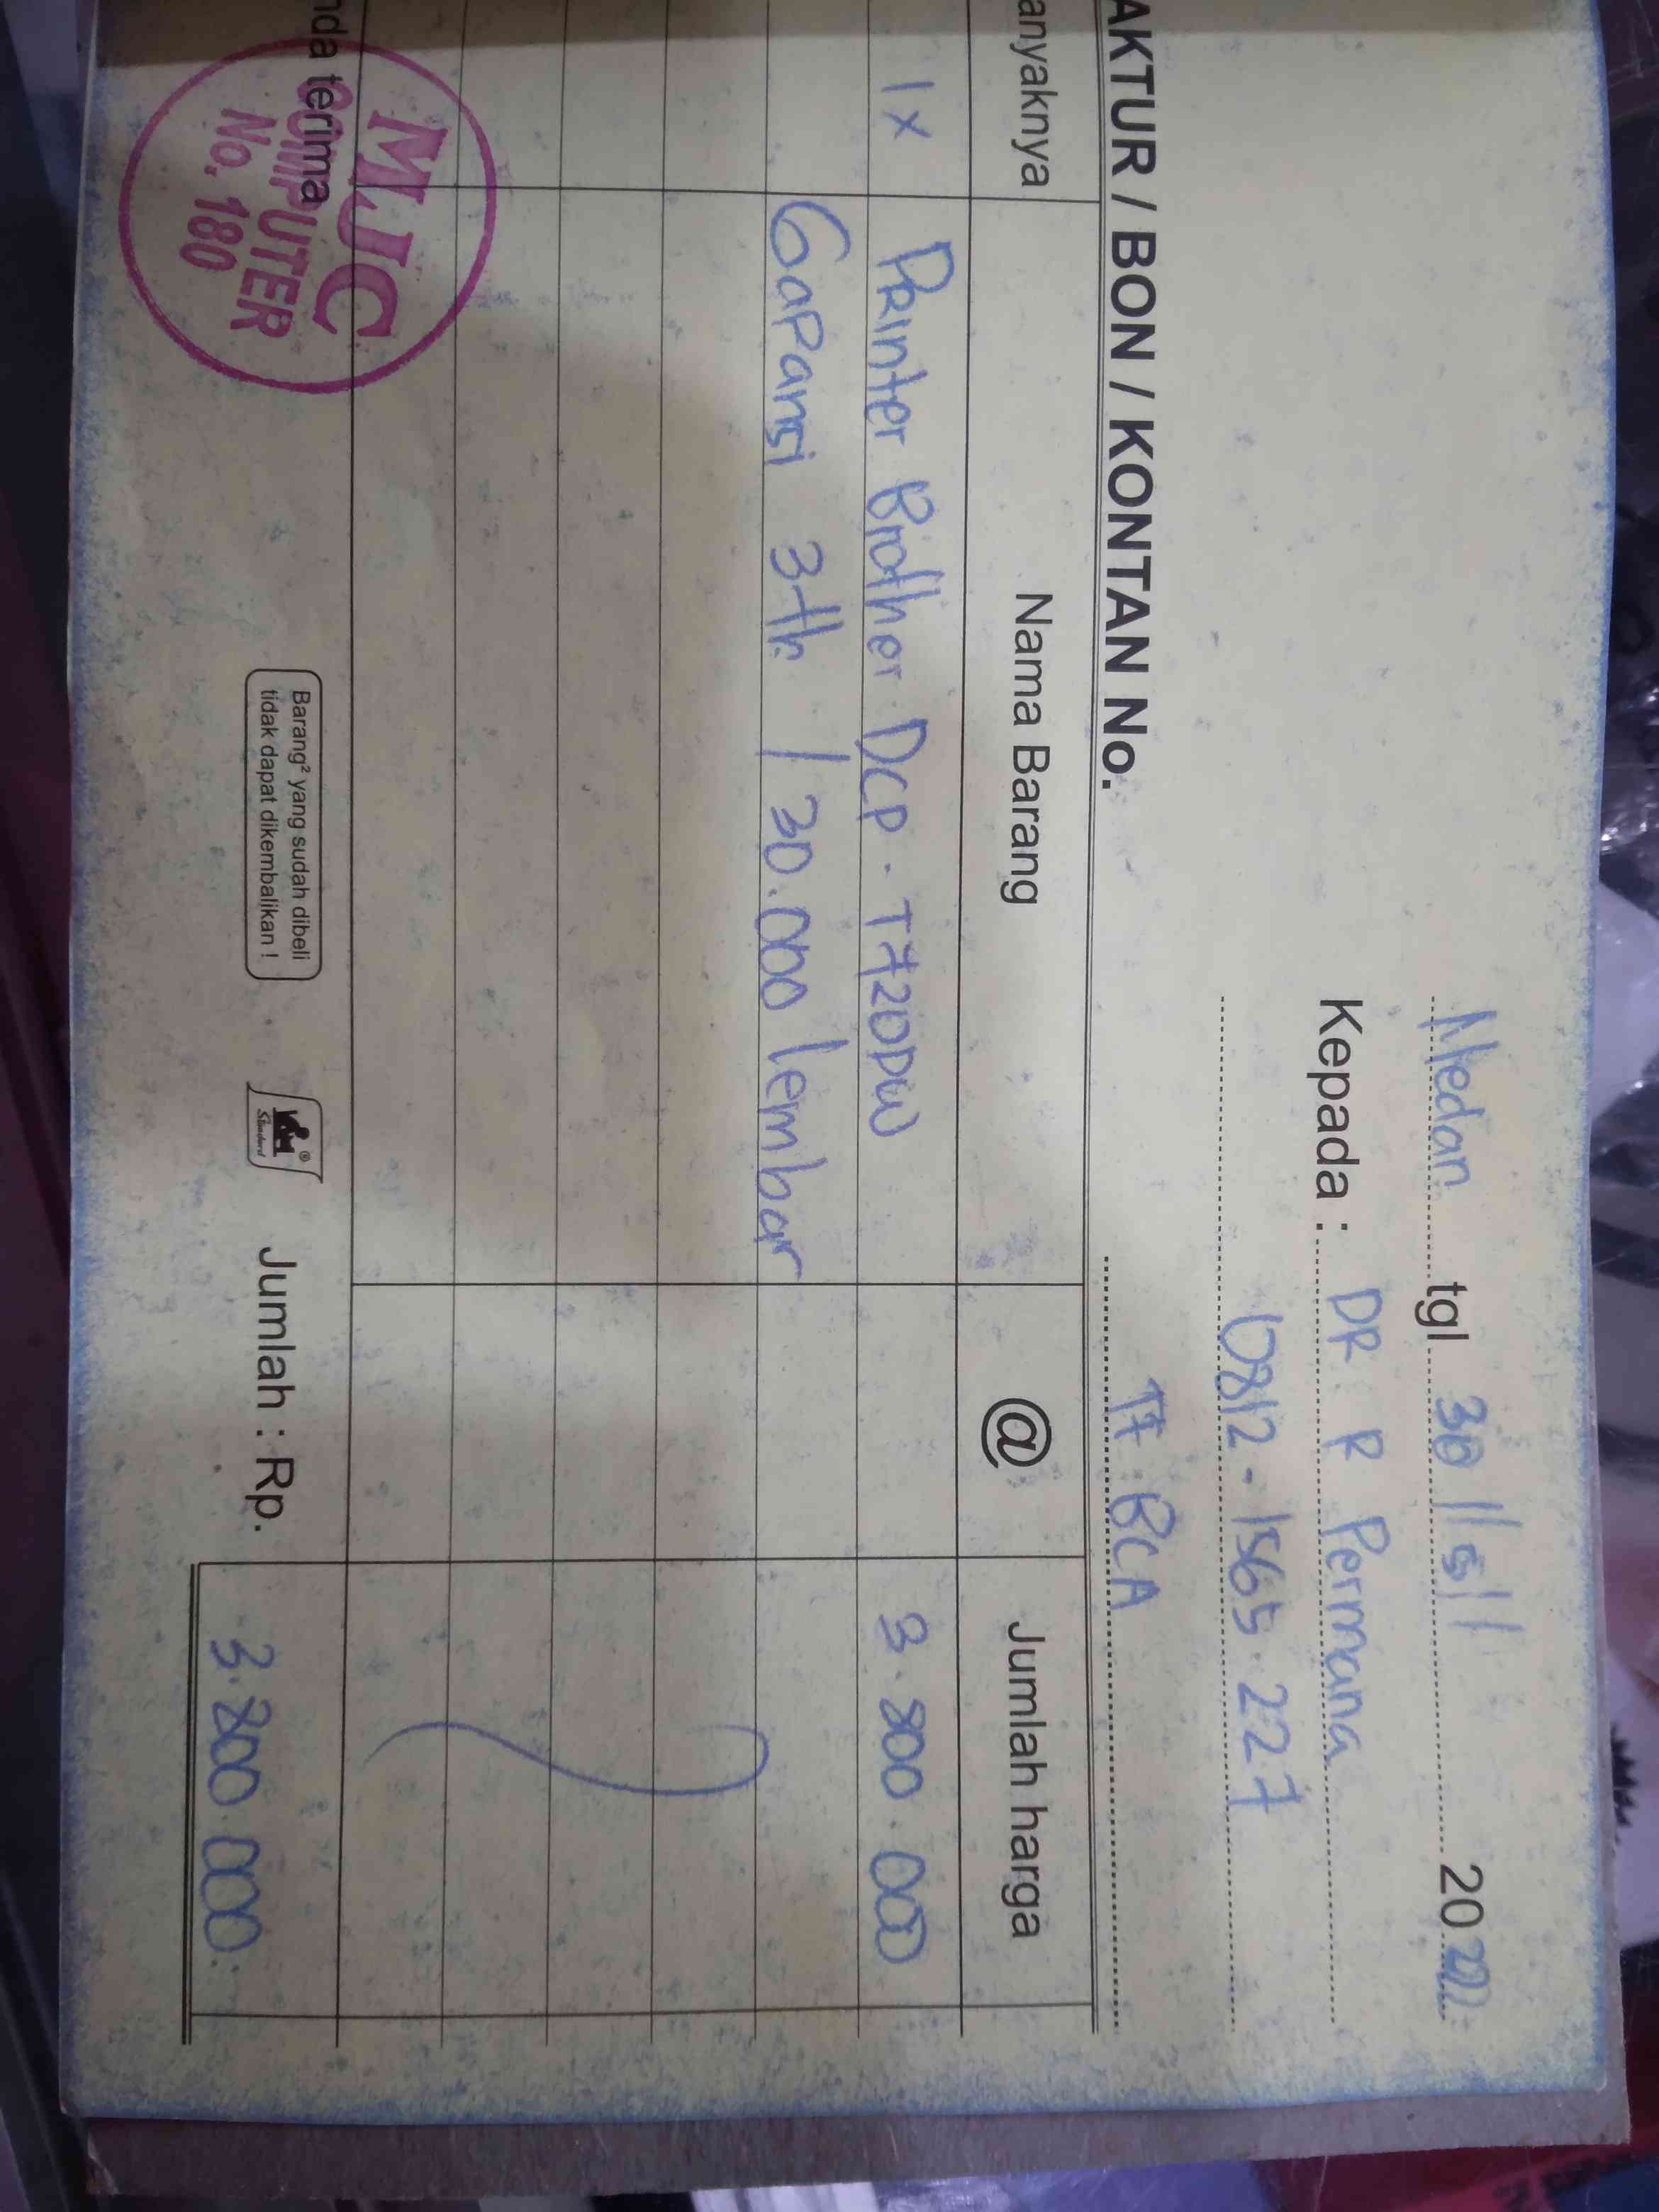 Medan tgl 30 / 5 / 2022
Kepada : DR R Permana
0812 - 1565 - 227
AKTUR / BON / KONTAN No. TF BCA
anyaknya Nama Barang @ Jumlah harga
1 x Printer Brother DCP - T720DW 3.800.000
Gapansi 3th / 30.000 lembar
nda terima
MJC
COMPUTER
No. 180
Barang² yang sudah dibeli
tidak dapat dikembalikan !
Standard
Jumlah : Rp. 3.800.000